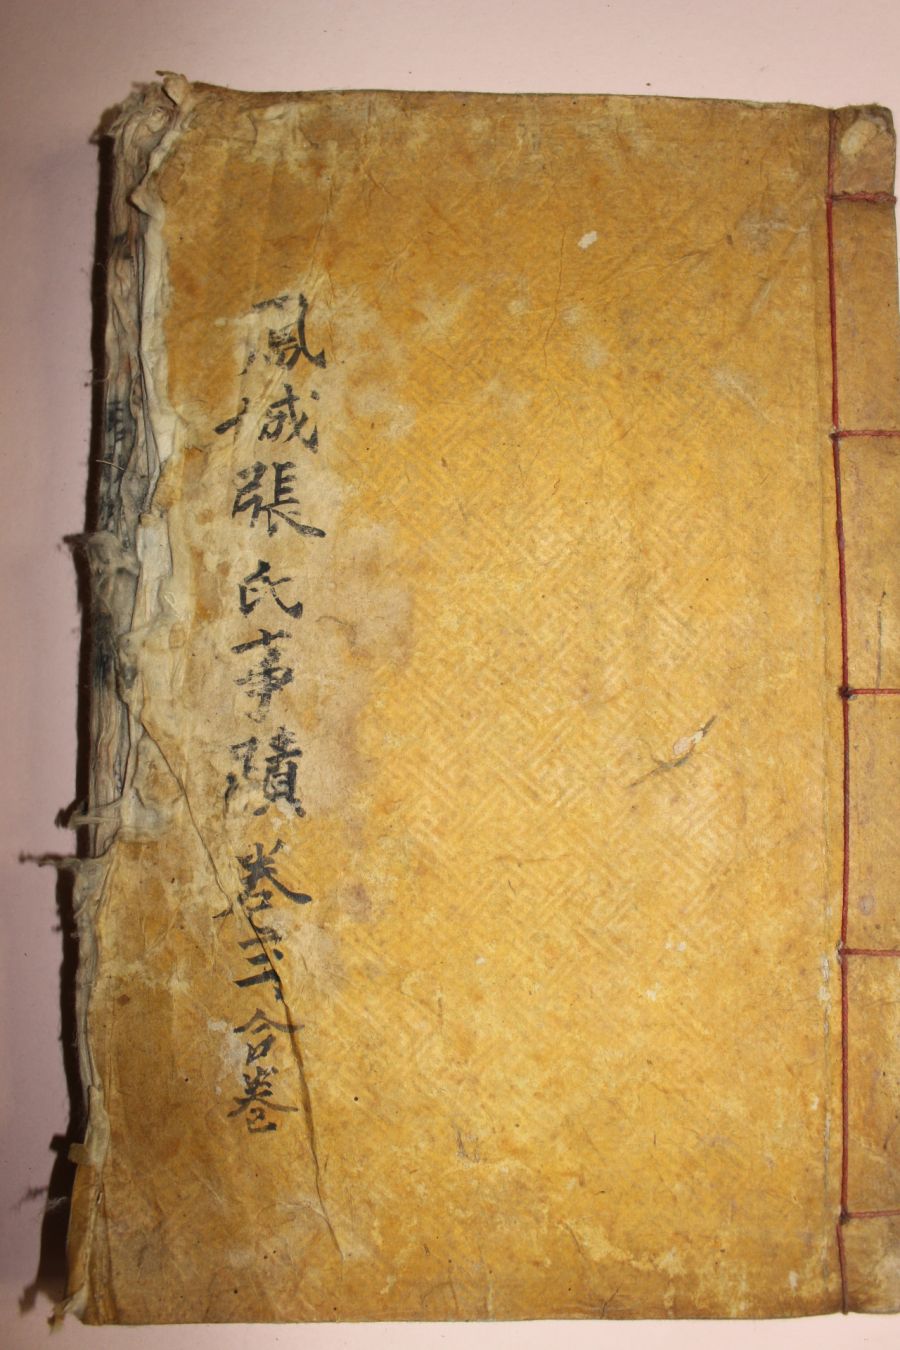 鳳城張氏事蹟卷三合卷